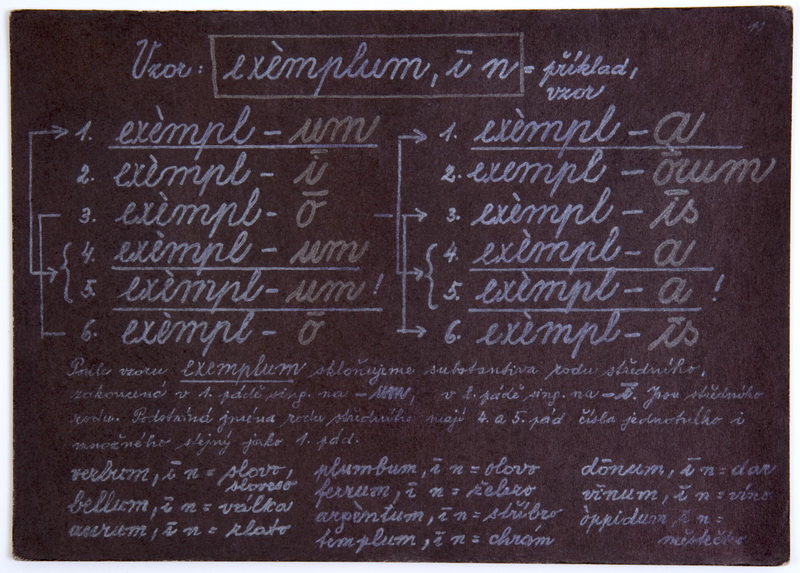 Vzor: exèmplum, ī n = příklad,
vzor
1. exèmpl – um
2. exèmpl – ī
3. exèmpl – ō
4. exèmpl – um
5. exèmpl – um!
6. exèmpl – ō
1. exèmpl – a
2. exempl – òrum
3. exèmpl – īs
4. exèmpl – a
5. exèmpl – a !
6. exèmpl – īs
Podle vzoru exemplum skloňujeme substantiva rodu středního,
zakončená v 1. pádě sing. na -um, v 2. pádě sing. na -ī. Jsou středního
rodu. Podstatná jména rodu středního mají 4. a 5. pád čísla jednotného i
množného stejný jako 1. pád.
verbum, ī n = slovo,
sloveso
bellum, ī n = válka
aurum, ī n = zlato
plumbum, ī n = olovo
ferrum, ī n = železo
argèntum, ī n = stříbro
templum, ī n = chrám
dōnum, ī n = dar
vīnum, ī n = víno
òppidum, ī n =
městečko